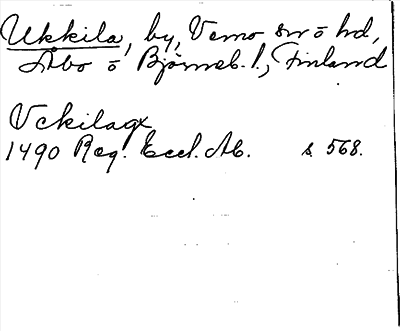 Ukkila, by, Vemo sn o hd,
Åbo o Björneb. l., Finland
Vckilax
1490 Reg. Eccl. Ab. s. 568.